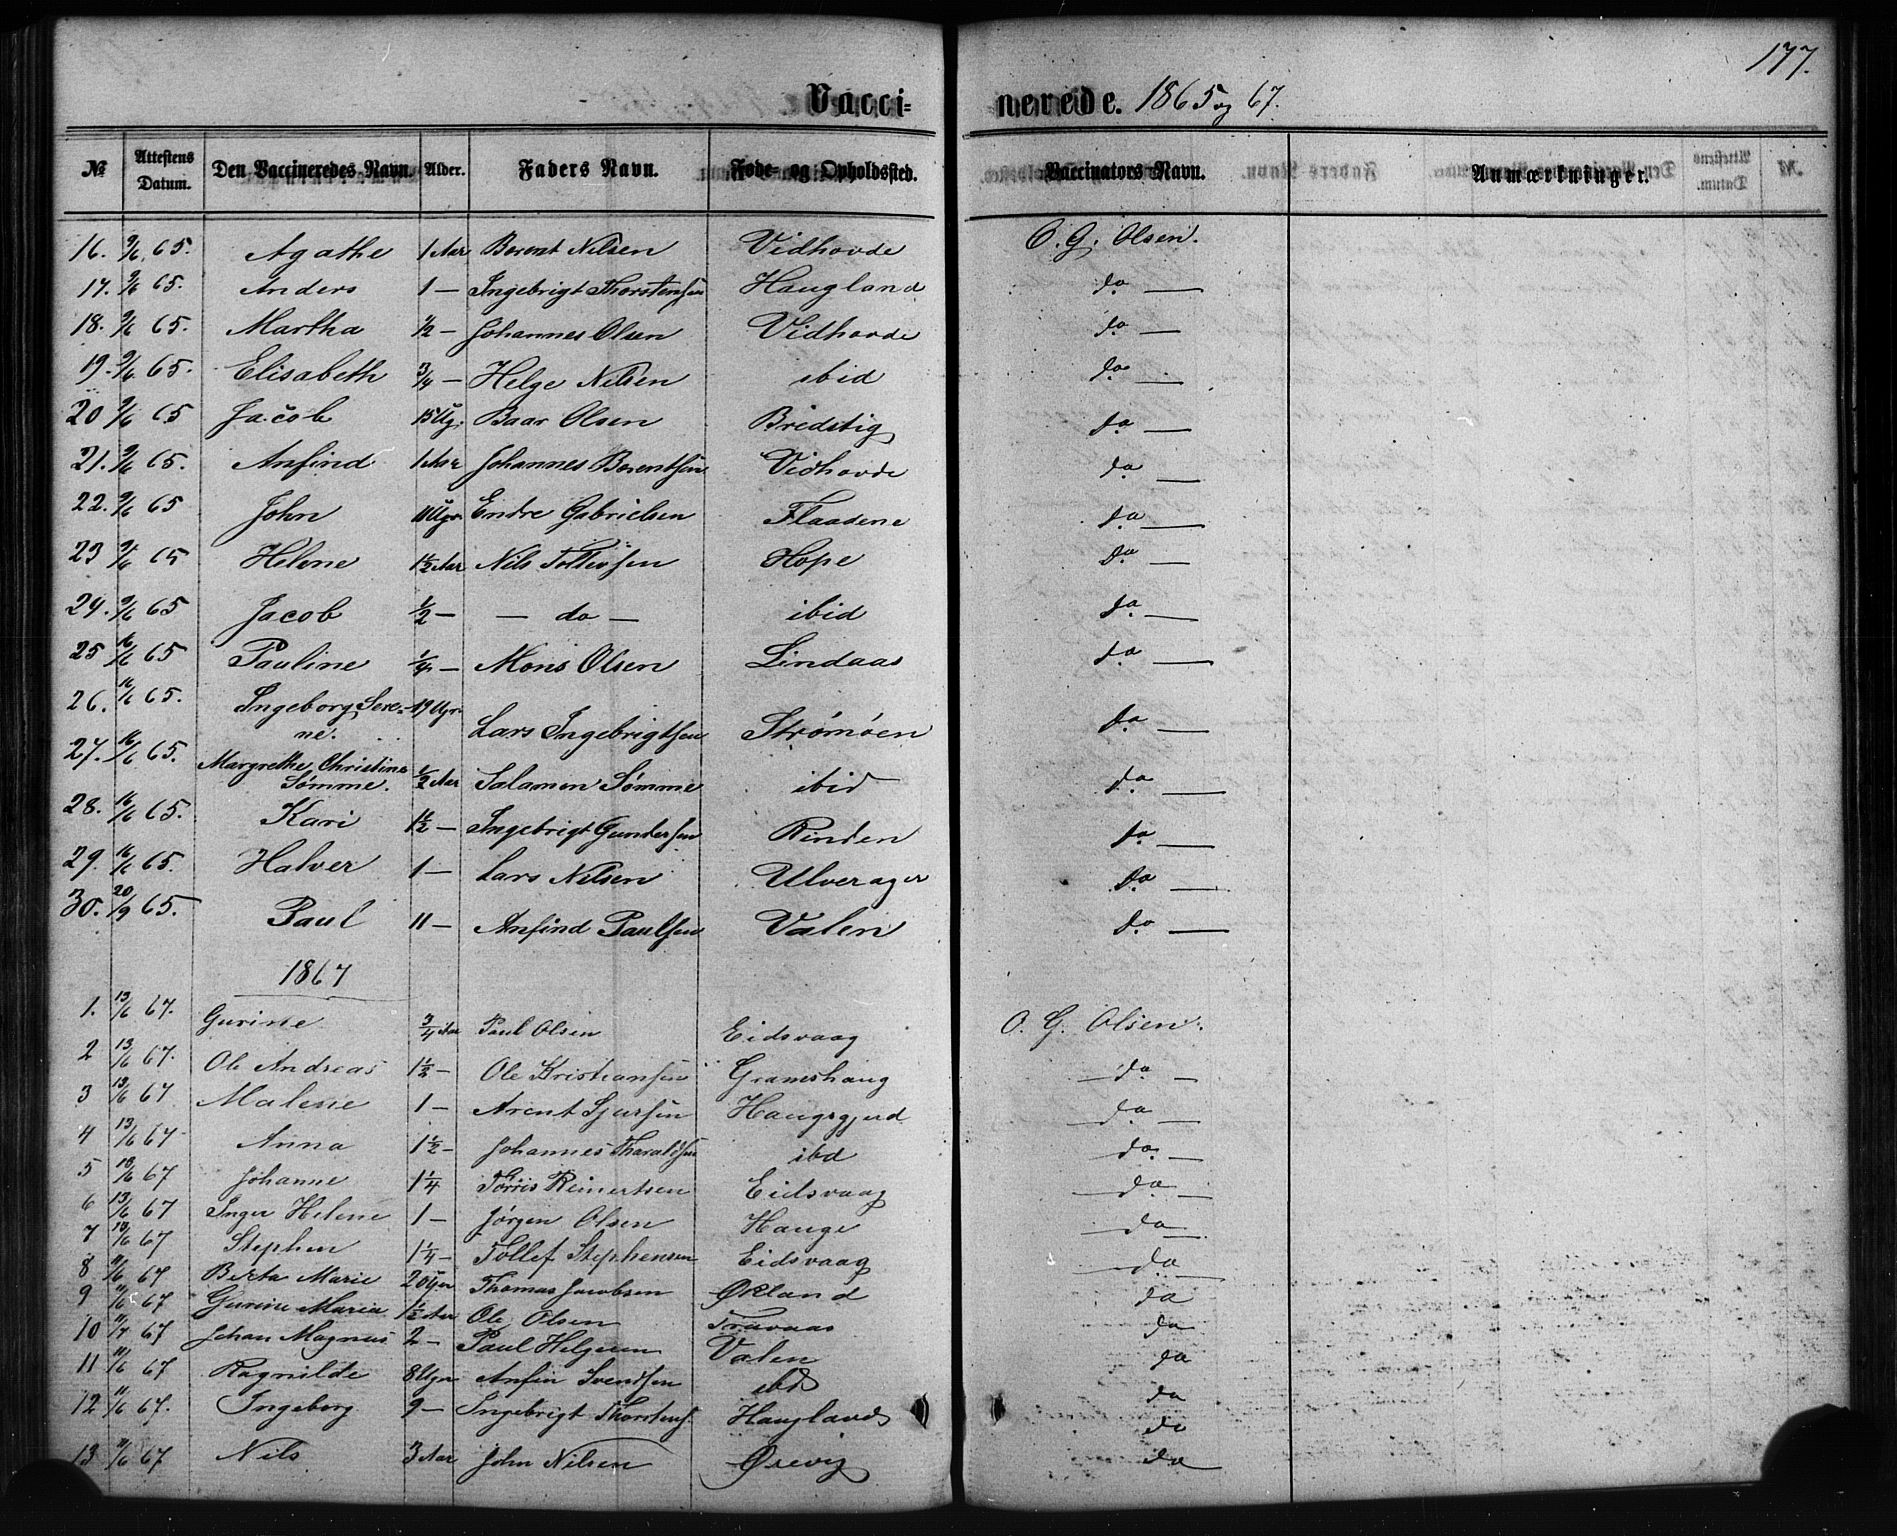 177.
Vacci- nerede. 1865 og 67.
№ Attestens Datum. Den Vaccineredes Navn. Alder. Faders Navn. Føde- og Opholdssted. Vaccinators Navn. Anmærkninger.
16. 9/6 65. Agathe 1 Aar Berent Nilsen Vidhovde O. G. Olsen.
17. 9/6 65. Anders 1 — Ingebrigt Thorstensen Haugland do —
18. 9/6 65. Martha 1/2 — Johannes Olsen Vidhovde do —
19. 9/6 65. Elisabeth 3/4 — Helge Nilsen ibid do —
20 9/6 65 Jacob 15 Ug. Baar Olsen Bredstig do —
21. 9/6 65. Anfind 1 Aar Johannes Berentsen Vidhovde do —
22. 9/6 65 John Ugr Endre Gabrielsen Flaadene do —
23 9/6 65 Helene 1 1/2 Aar Nils Hope do —
24. 9/6 65 Jacob 1/2 — — do — ibid do —
25 16/6 65 Pauline — Mons Olsen Lindaas do —
26. 16/6 65. Ingeborg Sere-
ne. 19 Ugr. Lars Ingebrigtsen Strømøen do —
27. 16/6 65. Margrethe Christine
Sømme. 1/2 Aar Salamon Sømme ibid do —
28. 16/6 65. Kari 1 1/2 — Ingebrigt Gundersen Rinden do —
29. 16/6 65. Halver 1 — Lars Nilsen Ulverager do —
30. 20/9 65. Paul 11 — Anfind Paulsen Valen do —
1867
1. 13/6 67. Gurine 3/4 Aar Paul Olsen Eidsvaag O. G. Olsen.
2 13/6 67. Ole Andreas 1 1/2 — Ole Kristiansen Gramshaug — do —
3 13/6 67 Malene 1 — Arent Sjursen Haugsgjerd — do —
4 13/6 67 Anna 1 1/2 — Johannes Tharaldsen ibd — do —
5 13/6 67 Johanne 1 1/4 Tørris Reinertsen Eidsvaag — do —
6 13/6 67 Inger Helene 1 — Jørgen Olsen Hauge — do —
7 13/6 67 Stephen 1 1/4 — Tollef Stephensen Eidsvaag — do —
8 11/6 67 Berta Marie 20 Ugr Thomas Jacobsen Økland do
9 11/6 67 Gurine Maria 1 1/2 Aar Ole Olsen do
10 67 Johan Magnus 2 — Paul Helgesen Valen do
11 11/6 67 Ragnilde 8 Ugr Anfin Svendsen ibd do
12 11/6 67. Ingeborg 9 — Ingebrigt Thorstens. Hauglands do
13 11/6 67 Nils 3 Aar John Nilsen Ørevig do